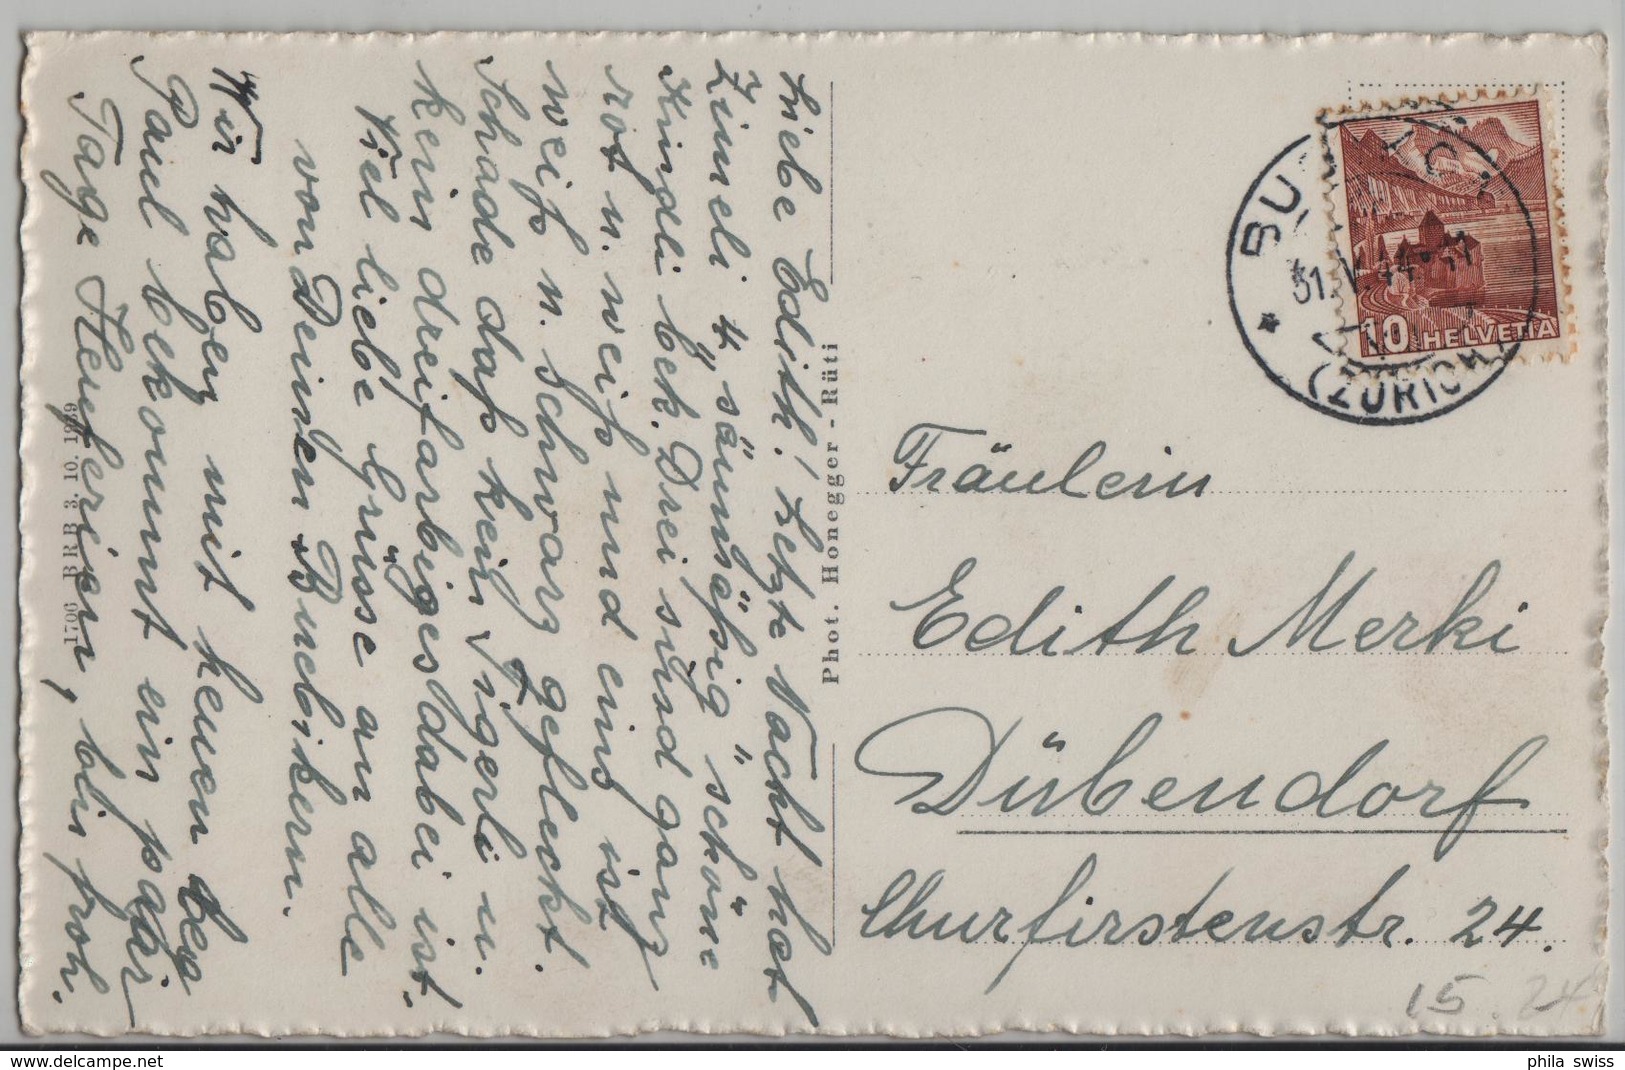 Liebe Edith! Letzte Nacht hat
Zimeli 4 „säumäßig" schöne
Kindli bek. Drei sind ganz
rot u. weiß und eins ist
weiß u. schwarz gefleckt.
Schade daß kein Tigerli u.
kein dreifarbiges dabei ist.
Viel liebe Grüsse an alle
von Deinen Bubikern.
Wir haben mit heuen beg
Paul bekommt ein paar
Tage Heuferien, bin froh.
1706 BRB 3. 10. 1939
Phot. Honegger - Rüti
BU
31.V.44
(ZÜRICH)
10 HELVETIA
Fräulein
Edith Merki
Dübendorf
Churfirstenstr. 24.
15
24
phila swiss